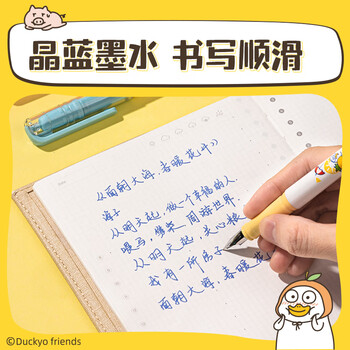 晶蓝墨水 书写顺滑
《面朝大海,春暖花开》
海子
从明天起,做一个幸福的人
喂马,劈柴,周游世界
从明天起,关心粮
我有一所房子
面朝大海,春暖花
©Duckyo friends